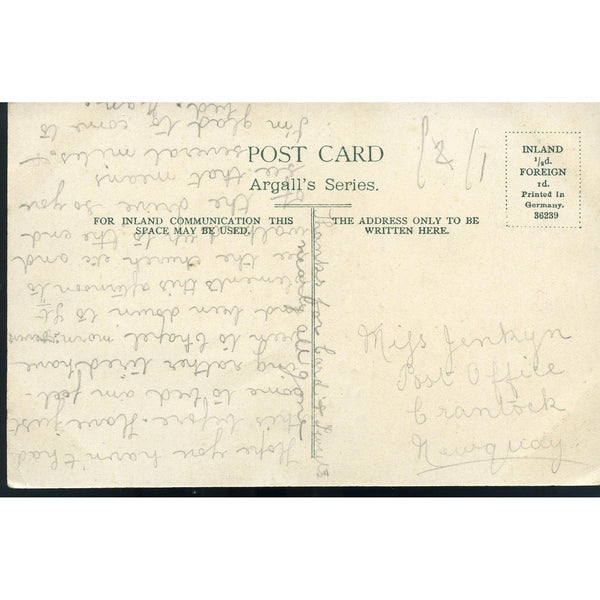 POST CARD
Argall's Series.
FOR INLAND COMMUNICATION THIS
SPACE MAY BE USED.
THE ADDRESS ONLY TO BE
WRITTEN HERE.
INLAND
½d.
FOREIGN
1d.
Printed in
Germany.
36239
Miss Jenkyn
Post Office
Crantock
Newquay
Hope you havn't had
this before. Have just
come to bed am feel-
ing rather tired have
been to Chapel morn.
and been down to St
Clements this afternoon to
see the church etc and
walked up to the end
of the drive so you
see that means
several miles.
I'm glad to come to
bed.
Thanks for card &
nearly all gone